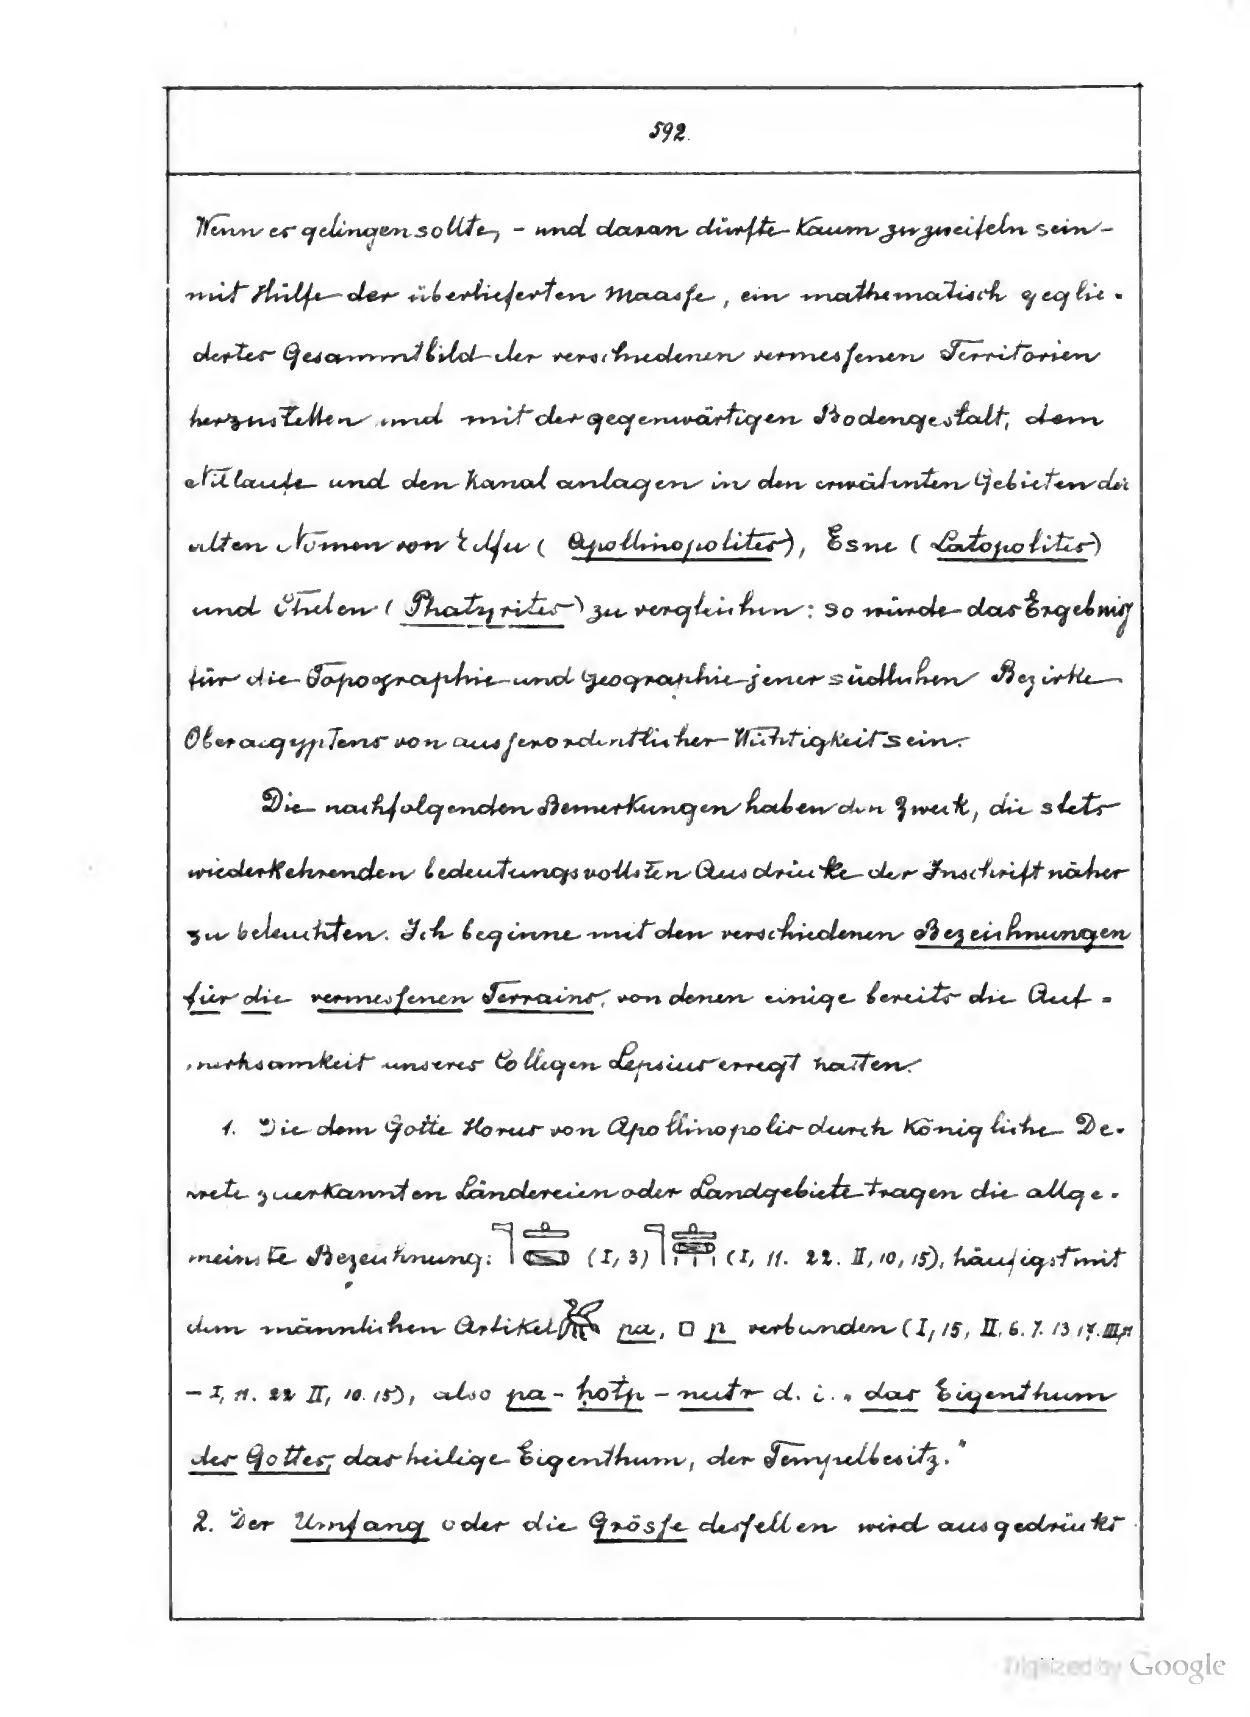 592.
Wenn es gelingen sollte, - und daran dürfte kaum zu zweifeln sein -
mit Hülfe der überlieferten Maasse, ein mathematisch geglie-
dertes Gesammtbild der verschiedenen vermessenen Territorien
herzustellen und mit der gegenwärtigen Bodengestalt, dem
Nillaufe und den Kanalanlagen in den erwähnten Gebieten der
alten Nomen von Edfu (Apollinopolites), Esne (Latopolites)
und Theben (Phatyrites) zu vergleichen: so würde das Ergebniß
für die Topographie und Geographie jener südlichen Bezirke
Oberaegyptens von ausserordentlicher Wichtigkeit sein.
Die nachfolgenden Bemerkungen haben den Zweck, die stets
wiederkehrenden bedeutungsvollsten Ausdrücke der Inschrift näher
zu beleuchten. Ich beginne mit den verschiedenen Bezeichnungen
für die vermessenen Terrains, von denen einige bereits die Auf-
merksamkeit unseres Collegen Lepsius erregt hatten.
1. Die dem Gotte Horus von Apollinopolis durch Königliche De-
crete zuerkannten Ländereien oder Landgebiete tragen die allge-
meinste Bezeichnung: (I, 3) (I, 11. 22. II, 10, 15), häufigst mit
dem männlichen Artikel pa, p verbunden (I, 15, II. 6. 7. 13 17. III,
- I, 11. 22 II, 10. 15), also pa - hotp - nutr d. i. „das Eigenthum
des Gottes, das heilige Eigenthum, der Tempelbesitz."
2. Der Umfang oder die Grösse desselben wird ausgedrückt